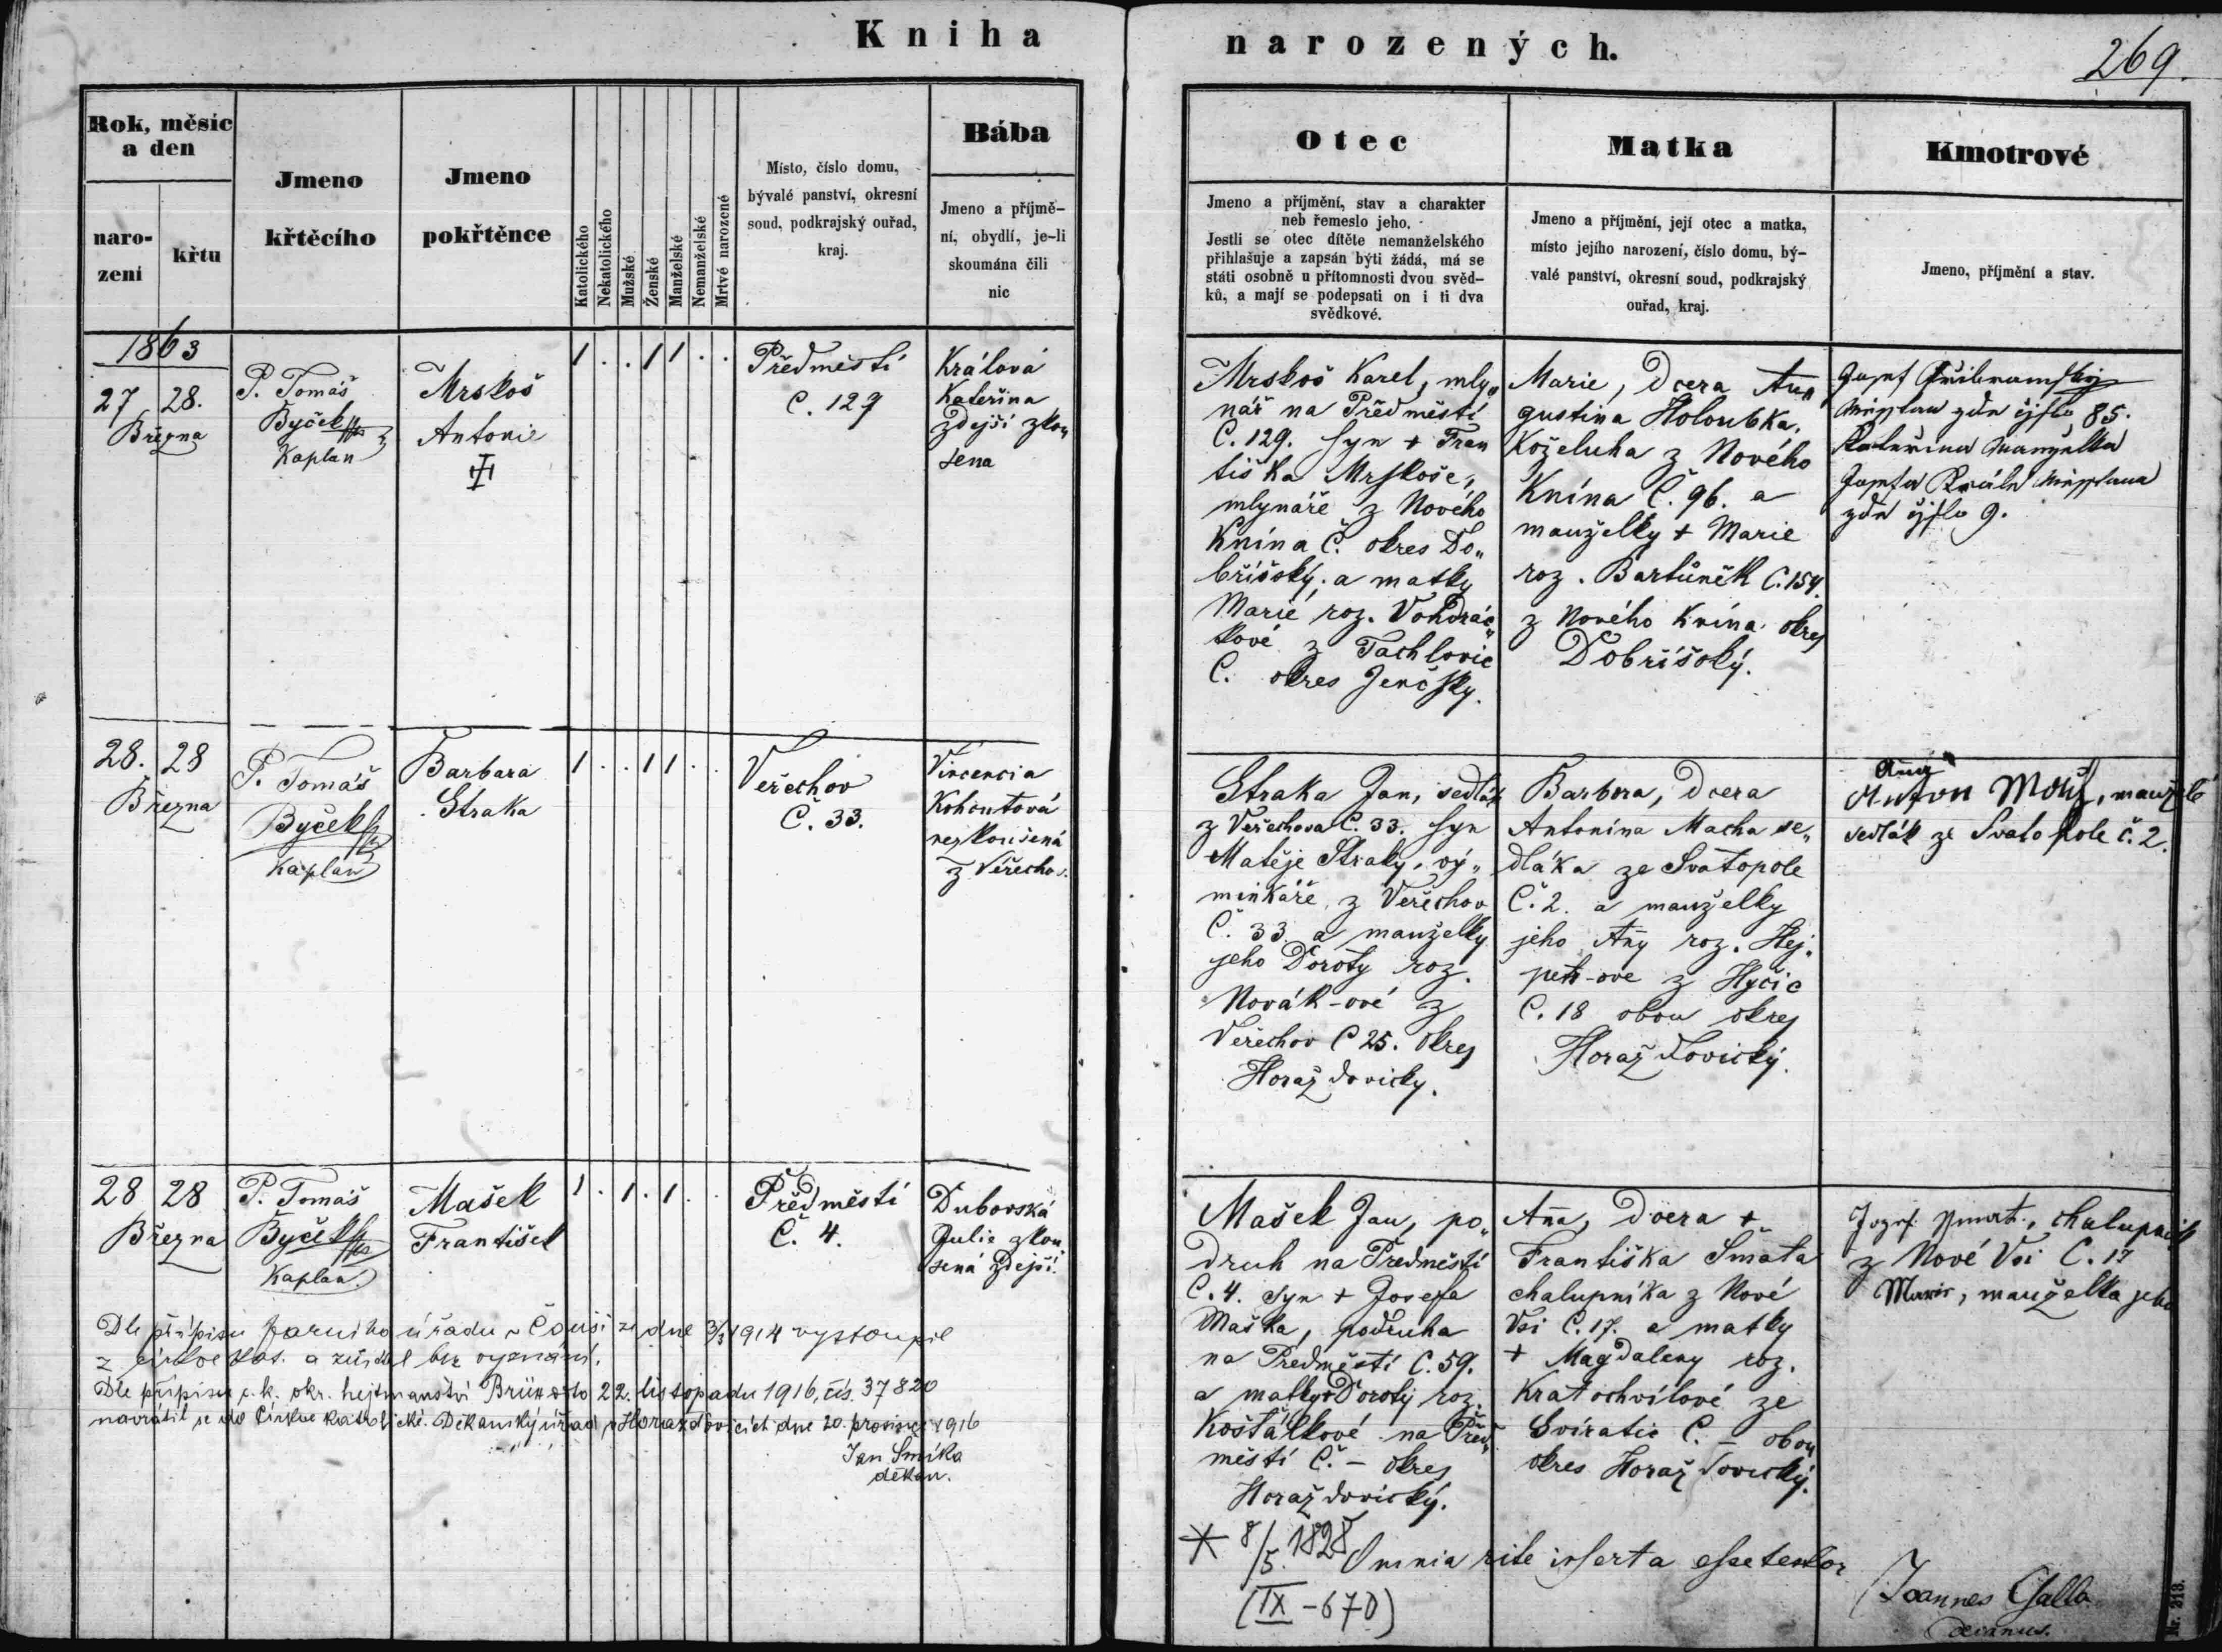 Kniha
narozených.
269.
Rok, měsíc
a den
naro-
zení
křtu
Jmeno
křtěcího
Jmeno
pokřtěnce
Katolického
Nekatolického
Mužské
Ženské
Manželské
Nemanželské
Mrtvé narozené
Místo, číslo domu,
bývalé panství, okresní
soud, podkrajský ouřad,
kraj.
Bába
Jmeno a příjmě-
ní, obydlí, je-li
skoumána čili
nic
Otec
Jmeno a příjmění, stav a charakter
neb řemeslo jeho.
Jestli se otec dítěte nemanželského
přihlašuje a zapsán býti žádá, má se
státi osobně u přítomnosti dvou svěd-
ků, a mají se podepsati on i ti dva
svědkové.
Matka
Jmeno a příjmění, její otec a matka,
místo jejího narození, číslo domu, bý-
valé panství, okresní soud, podkrajský
ouřad, kraj.
Kmotrové
Jmeno, příjmění a stav.
1863
27 28.
Března
P. Tomáš
Byček
Kaplan
Mrskoš
Antonie
1 . . 1 1 . .
Předměstí
C. 129
Králová
Kateřina
zdejší zkou
šena
Mrskoš Karel, mly„
nář na Předměstí
C. 129. syn + Fran
tiška Mrskoše,
mlynáře z Nového
Knína Č. okres Do„
bříšský. a matky
Marie, roz. Vondráč„
kové z Tachlovic
C. okres Jenčský.
Marie, dcera Au„
gustina Holoubka,
Koželuha z Nového
Knína Č. 96. a
manželky + Marie
roz. Bartůněk C. 154.
z Nového Knína okres
Dobříšský.
Josef
85.
Kateřina manželka
Josefa Krále
číslo 9.
28. 28
Března
P. Tomáš
Byček
Kaplan
Barbara
Straka
1 . . 1 1 . .
Veřechov
Č. 33.
Vincencia
Kohoutová
neskoušená
z Veřechov.
Straka Jan, sedlák
z Veřechova C. 33. syn
Matěje Straky, vý„
minkáře, z Veřechov
Č. 33. a manželky
jeho Doroty roz.
Novák-ové z
Veřechov C 25. okres
Horažďovický.
Barbora, dcera
Antonína Macha se„
dláka ze Svatopole
Č. 2. a manželky
jeho Ańy roz. Hej„
petr-ove z Hyčic
C. 18 obou okres
Horažďovický.
Anton, manželé
sedlák ze Svatopole č. 2.
28 28
Března
P. Tomáš
Byček
Kaplan.
Mašek
František
1 . 1 . 1 . .
Předměstí
Č. 4.
Dubovská
Julie zkou
šená zdejší.
Mašek Jan, po„
druh na Předměstí
C. 4. syn + Josefa
Maška, podruha
na Předměstí C. 59.
a matky + Doroty roz.
Košťálkové na Před„
městí Č. – okres
Horažďovický.
Ańa, dcera +
Františka Smata
chalupníka z Nové
Vsi C. 17. a matky
+ Magdaleny roz.
Kratochvílové ze
Svíratic C. – obou
okres Horažďovický.
Josef, chalupník
z Nové Vsi C. 17
Marie, manželka jeho
Dle přípisu farního úřadu v Čouši ze dne 3/3 1914 vystoupil
z církve kat. a zůstal bez vyznání.
Dle přípisu c. k. okr. hejtmanství Brüx z 22. listopadu 1916, čís. 37820
navrátil se do Církve katolické. Děkanský úřad v Horažďovicích dne 20. prosince 1916
Jan Smíka
děkan.
* 8/5. 1828
(IX - 670)
Omnia rite inserta esse testor
Joannes Galla
Decanus.
Nr. 313.